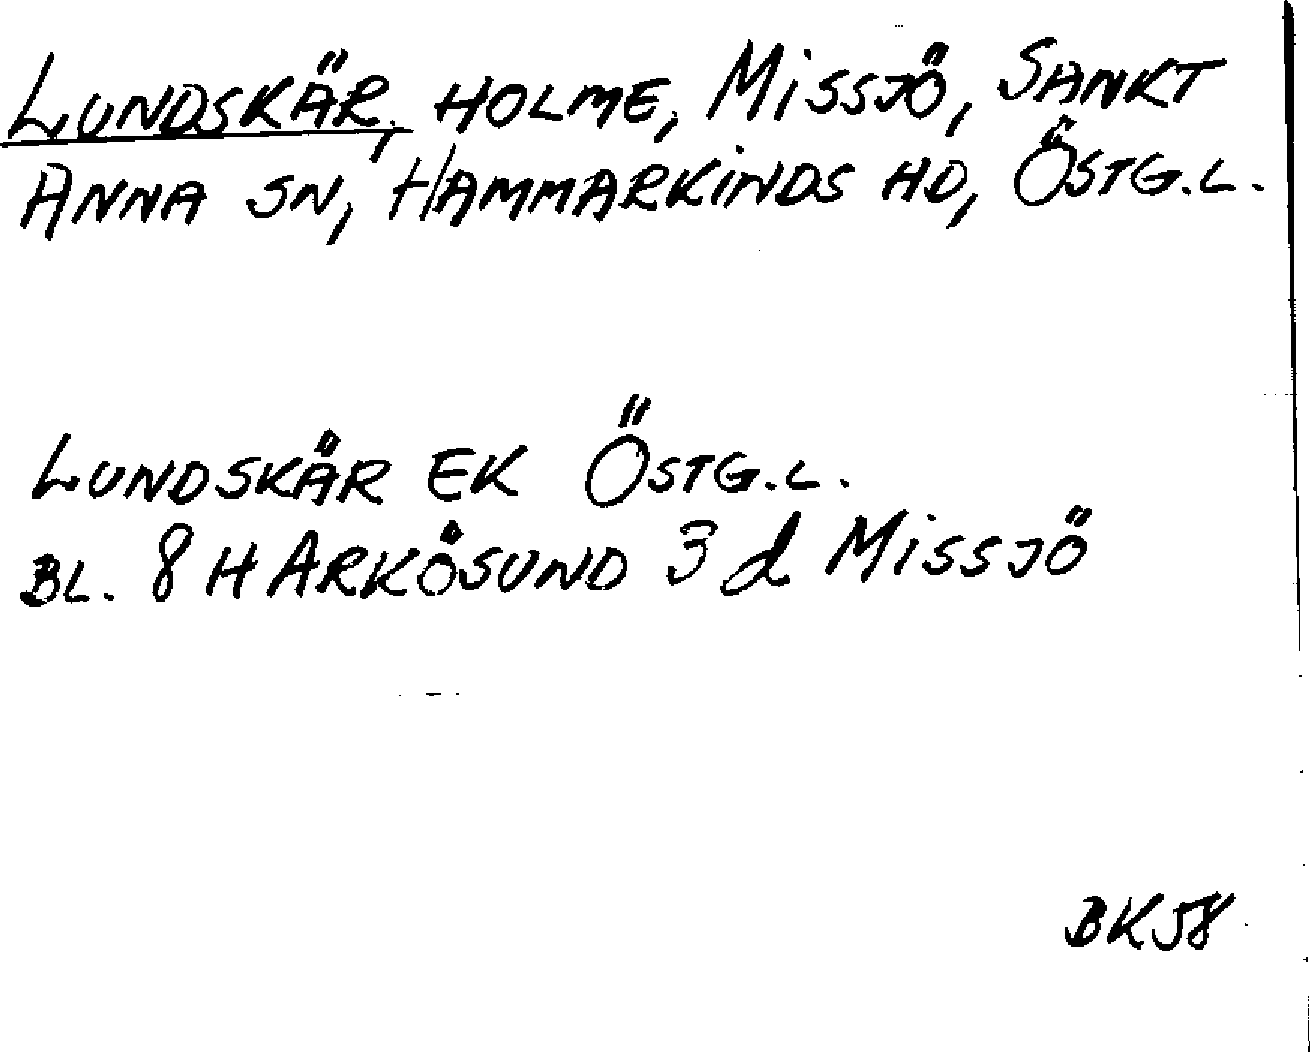 LUNDSKÄR, HOLME, MISSJÖ, SANKT
ANNA SN, HAMMARKINDS HD, ÖSTG.L.
LUNDSKÄR EK ÖSTG.L.
BL. 8 H ARKÖSUND 3 d MISSJÖ
BK58